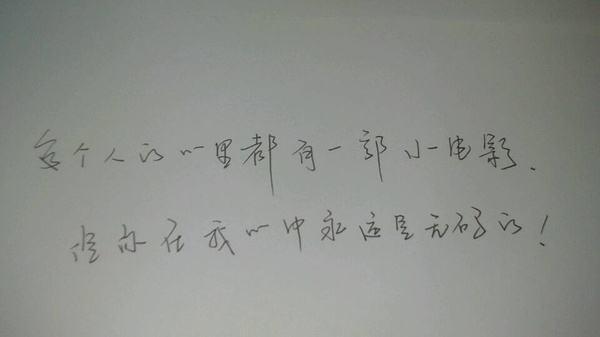 每个人的心里都有一部小电影.
但你在我心中永远是无码的!